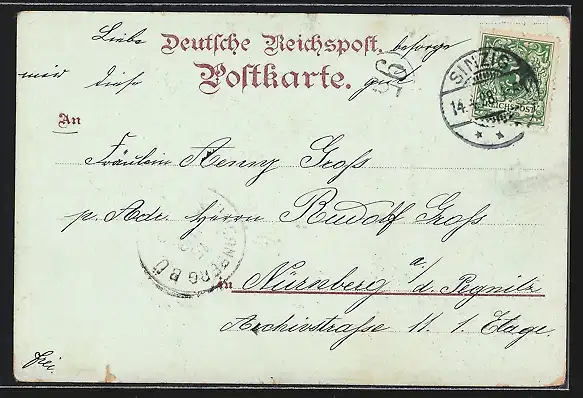 Liebe Deutsche Reichspost. besorge
mir diese Postkarte. gut
An
Fräulein Aenny Groß
p. Adr. Herrn Rudolf Groß
in Nürnberg a/d Pegnitz
Archivstrasse 11. 1. Etage.
frei.
SINZIG
14.
REICHSPOST
NBERG B Ü